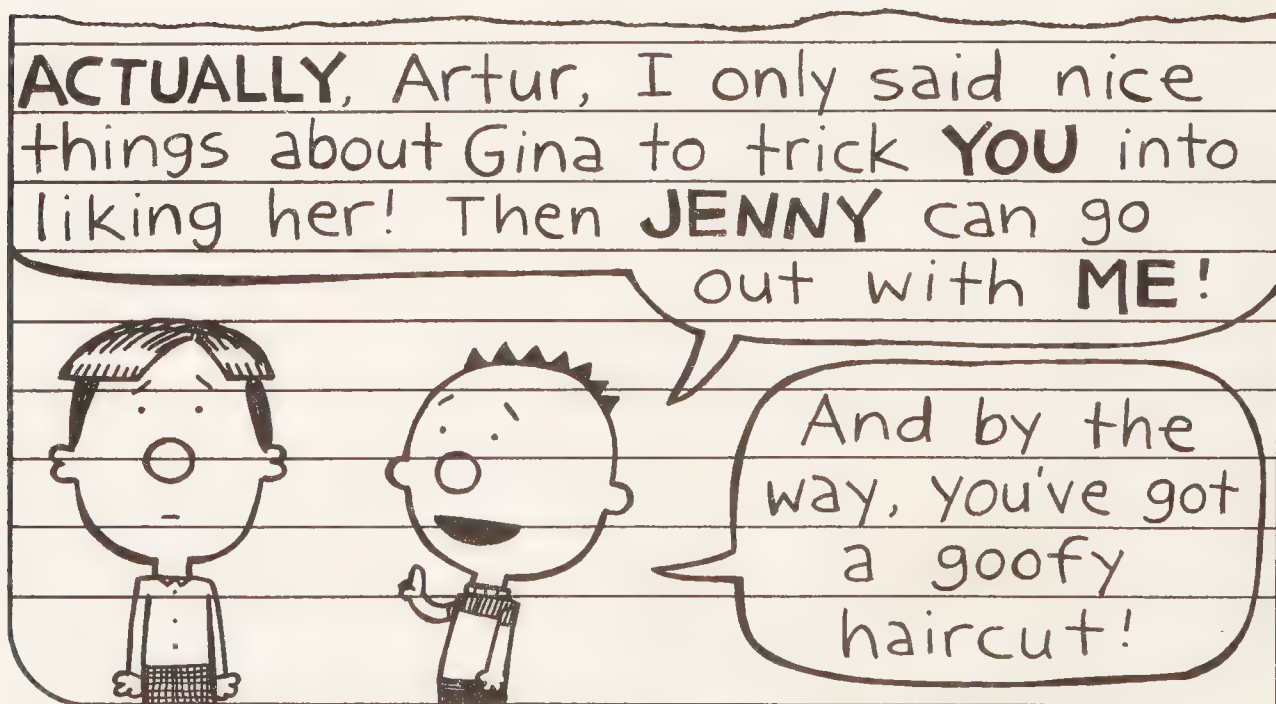 ACTUALLY, Artur, I only said nice
things about Gina to trick YOU into
liking her! Then JENNY can go
out with ME!
And by the
way, you've got
a goofy
haircut!